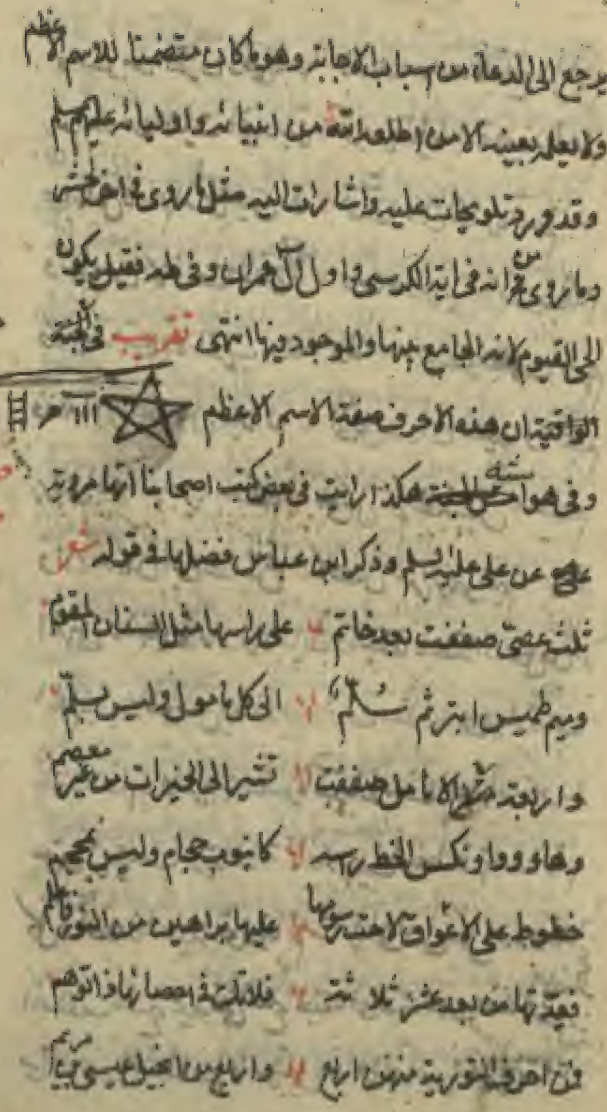 يرجع الى الدعاء من اسباب الاجابة وهو ما كان متضمنا للاسم الاعظم
ولا يعلمه بعينه الا من اطلعه الله من انبيائه واوليائه عليهم السلم
وقد ورد تلويحات عليه واشارات اليه مثل ما روى في اخر الحشر
وما روى من انه في اية الكرسي واول آل عمران وفي طه فقيل يكون
الحي القيوم لانه الجامع بينها والموجود فيها انتهى تقريب في الجنة
الواقية ان هذه الاحرف صفة الاسم الاعظم ااا م
وفي هوامش هكذا رايت في بعض كتب اصحابنا انها مروية
عن علي عليه السلم وذكر ابن عباس فضلها في قوله شعر
ثلث عصيّ صففت بعد خاتم على راسها مثل السنان المقوم
وميم طميس ابتر ثم سُلّم الى كل مامول وليس بسلّم
واربعة مثل الانامل صففت تشير الى الخيرات من غير معصم
وهاء وواو نكس الخط راسه كانبوب حجام وليس بمحجم
خطوط على الاعراف عليها براهين من النور
فعدتها من بعد عشر ثلاثة فلا تك في احصائها ذا توهم
فمن احرف التورية منهن اربع واربع من انجيل عيسى بن مريم